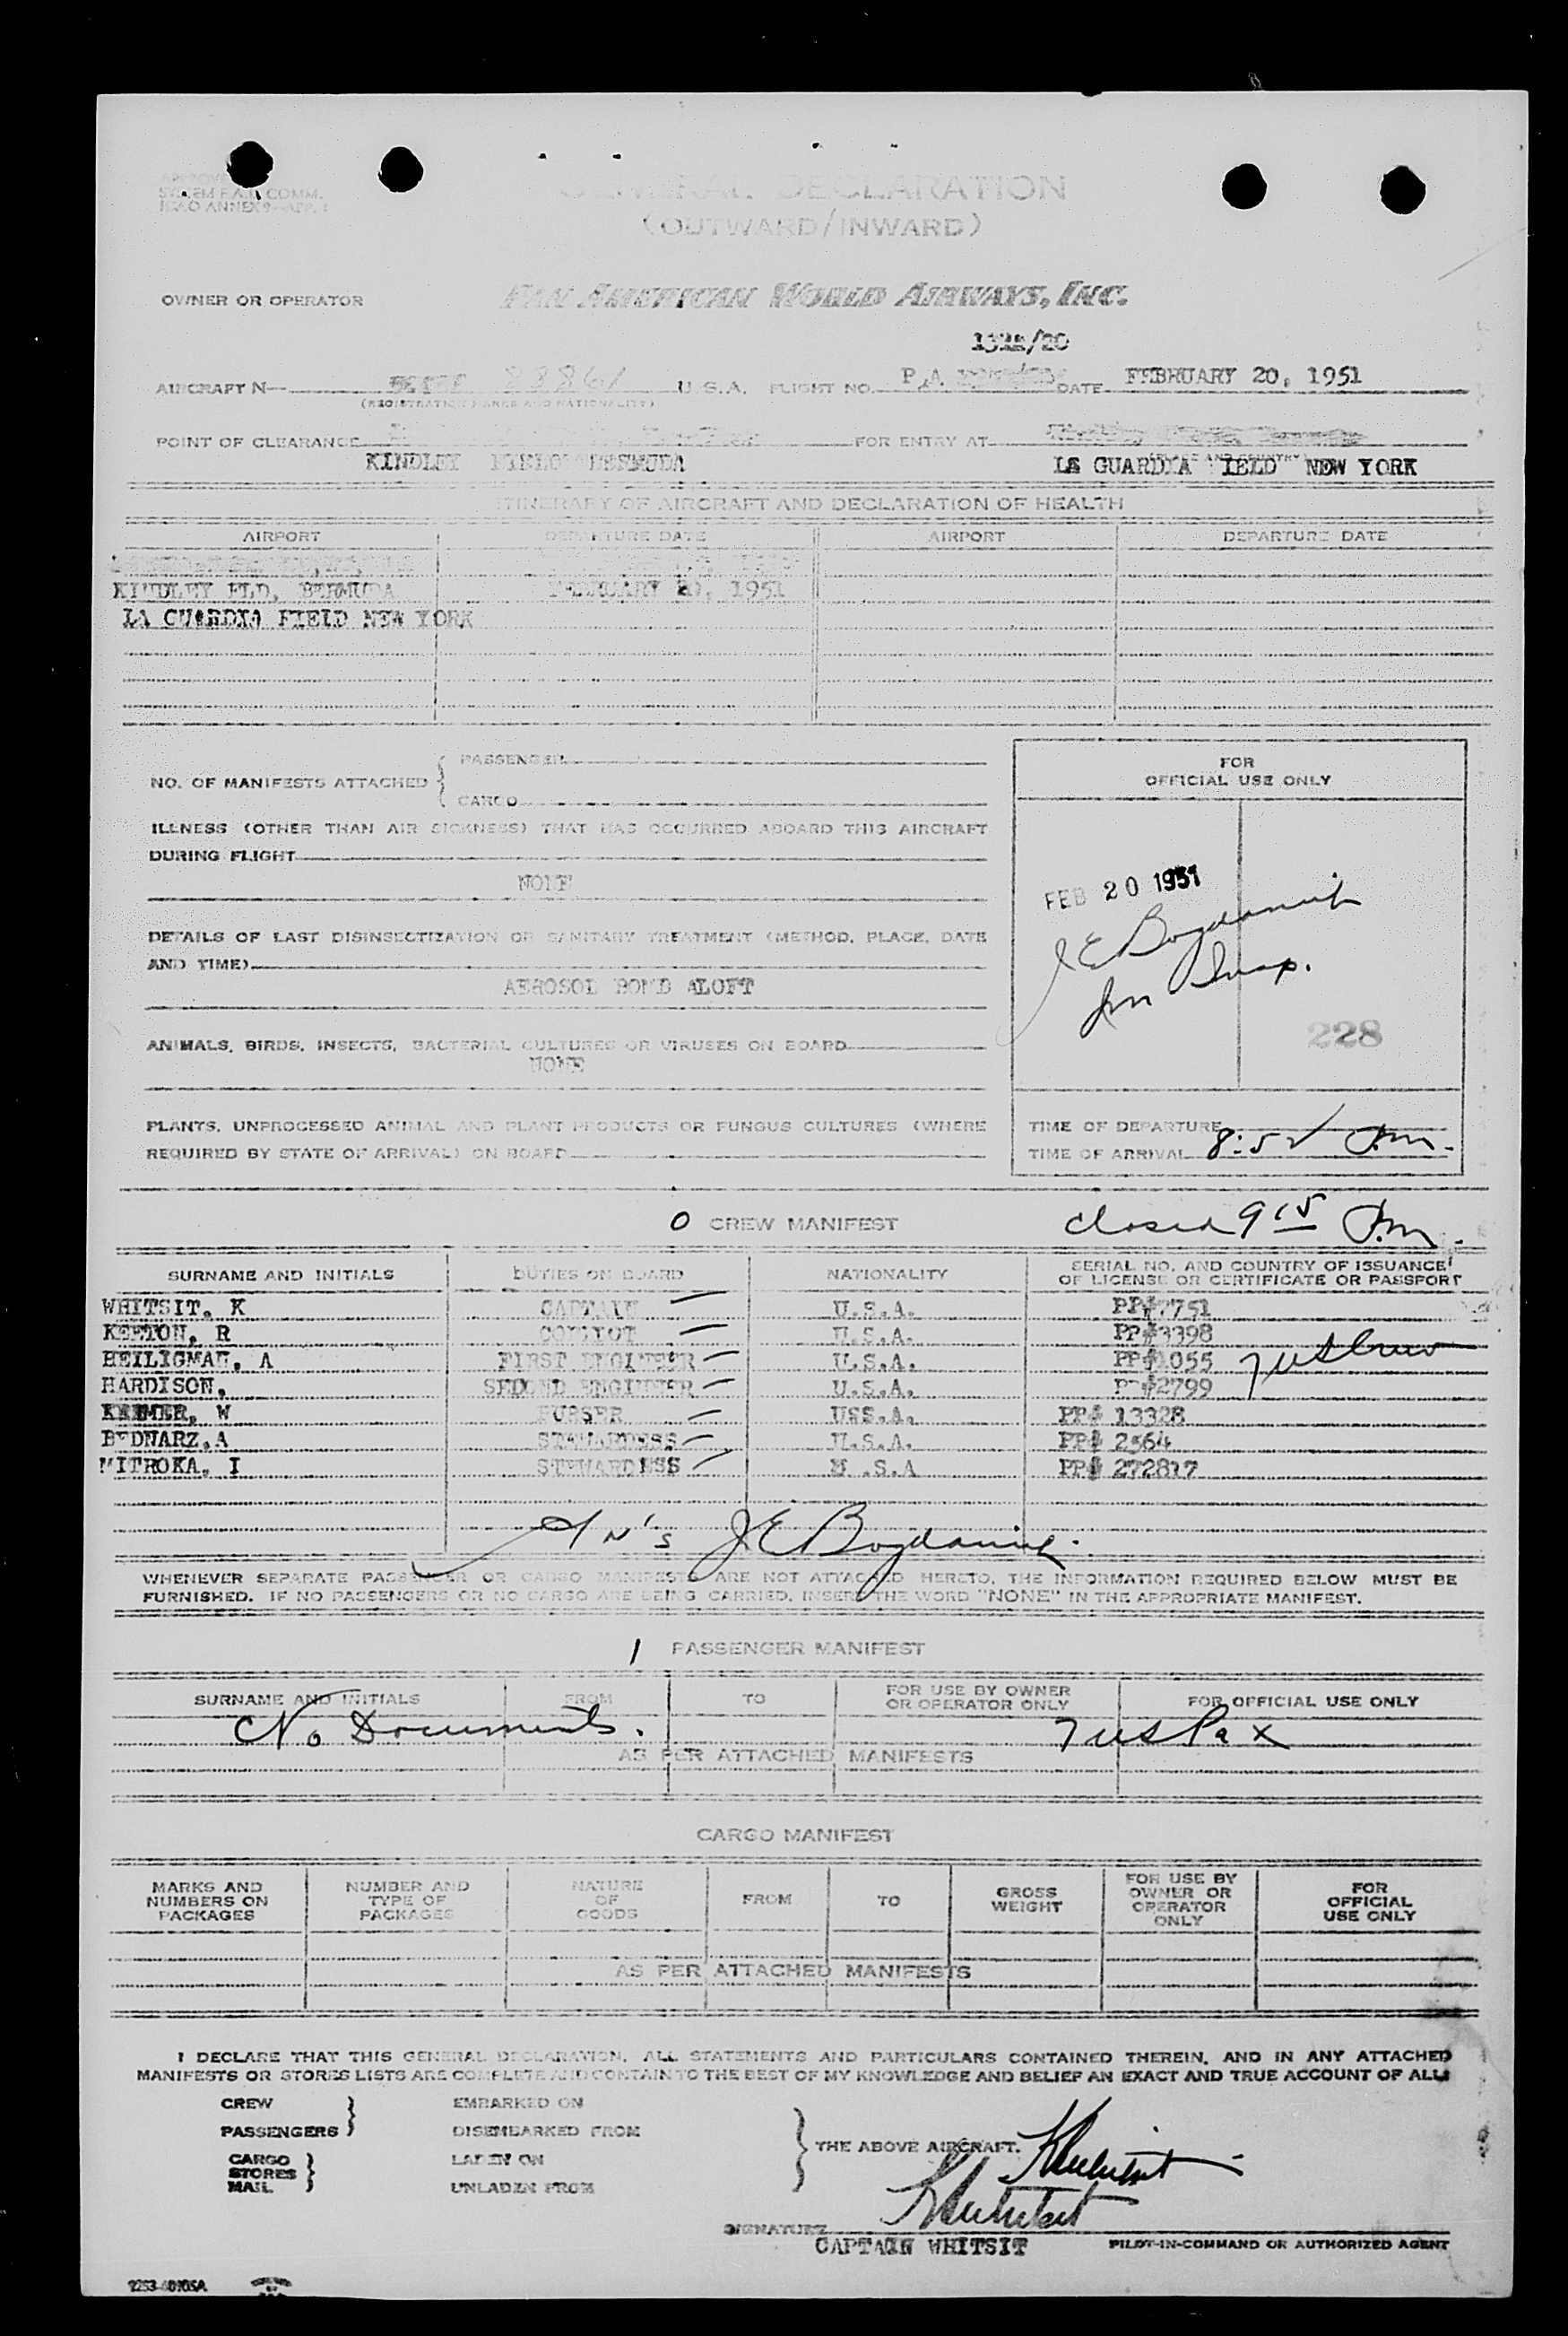 SYSTEM F.A.L. COMM.
ICAO ANNEX 9—APP. 1
GENERAL DECLARATION
(OUTWARD/INWARD)
OWNER OR OPERATOR PAN AMERICAN WORLD AIRWAYS, INC.
AIRCRAFT N— 88861 U.S.A. FLIGHT NO. P.A. DATE FEBRUARY 20, 1951
(REGISTRATION MARKS AND NATIONALITY)
POINT OF CLEARANCE FOR ENTRY AT
KINDLEY FIELD BERMUDA LA GUARDIA FIELD NEW YORK
ITINERARY OF AIRCRAFT AND DECLARATION OF HEALTH
AIRPORT DEPARTURE DATE AIRPORT DEPARTURE DATE
KINDLEY FLD, BERMUDA FEBRUARY 20, 1951
LA GUARDIA FIELD NEW YORK
NO. OF MANIFESTS ATTACHED { PASSENGER
CARGO
FOR
OFFICIAL USE ONLY
ILLNESS (OTHER THAN AIR SICKNESS) THAT HAS OCCURRED ABOARD THIS AIRCRAFT
DURING FLIGHT
NONE
FEB 20 1951
J E Bogdanink
Im Insp.
228
DETAILS OF LAST DISINSECTIZATION OR SANITARY TREATMENT (METHOD, PLACE, DATE
AND TIME)
AEROSOL BOMB ALOFT
ANIMALS, BIRDS, INSECTS, BACTERIAL CULTURES OR VIRUSES ON BOARD
NONE
PLANTS, UNPROCESSED ANIMAL AND PLANT PRODUCTS OR FUNGUS CULTURES (WHERE
REQUIRED BY STATE OF ARRIVAL) ON BOARD
TIME OF DEPARTURE
TIME OF ARRIVAL 8:5 P.m.
0 CREW MANIFEST closed 9 15 P.m.
SURNAME AND INITIALS DUTIES ON BOARD NATIONALITY SERIAL NO. AND COUNTRY OF ISSUANCE
OF LICENSE OR CERTIFICATE OR PASSPORT
WHITSIT, K CAPTAIN U.S.A. PP#7751
KEETON, R COPILOT U.S.A. PP#3398
HEILIGMAN, A FIRST ENGINEER U.S.A. PP#1055 7 US Crew
HARDISON, SECOND ENGINEER U.S.A. PP#2799
KREMER, W PURSER USS.A. PP# 13328
BEDNARZ,A STEWARDESS U.S.A. PP# 2564
MITROKA, I STEWARDESS U .S.A PP# 272817
IN's J E Bogdanink.
WHENEVER SEPARATE PASSENGER OR CARGO MANIFESTS ARE NOT ATTACHED HERETO, THE INFORMATION REQUIRED BELOW MUST BE
FURNISHED. IF NO PASSENGERS OR NO CARGO ARE BEING CARRIED, INSERT THE WORD "NONE" IN THE APPROPRIATE MANIFEST.
1 PASSENGER MANIFEST
SURNAME AND INITIALS FROM TO FOR USE BY OWNER
OR OPERATOR ONLY FOR OFFICIAL USE ONLY
No Documents. 7 US Pax
AS PER ATTACHED MANIFESTS
CARGO MANIFEST
MARKS AND
NUMBERS ON
PACKAGES
NUMBER AND
TYPE OF
PACKAGES
NATURE
OF
GOODS
FROM
TO
GROSS
WEIGHT
FOR USE BY
OWNER OR
OPERATOR
ONLY
FOR
OFFICIAL
USE ONLY
AS PER ATTACHED MANIFESTS
I DECLARE THAT THIS GENERAL DECLARATION, ALL STATEMENTS AND PARTICULARS CONTAINED THEREIN, AND IN ANY ATTACHED
MANIFESTS OR STORES LISTS ARE COMPLETE AND CONTAIN TO THE BEST OF MY KNOWLEDGE AND BELIEF AN EXACT AND TRUE ACCOUNT OF ALL:
CREW EMBARKED ON
PASSENGERS DISEMBARKED FROM
THE ABOVE AIRCRAFT. KWhitsit
CARGO
STORES
MAIL
LADEN ON
UNLADEN FROM
KWhitsit
SIGNATURE
CAPTAIN WHITSIT PILOT-IN-COMMAND OR AUTHORIZED AGENT